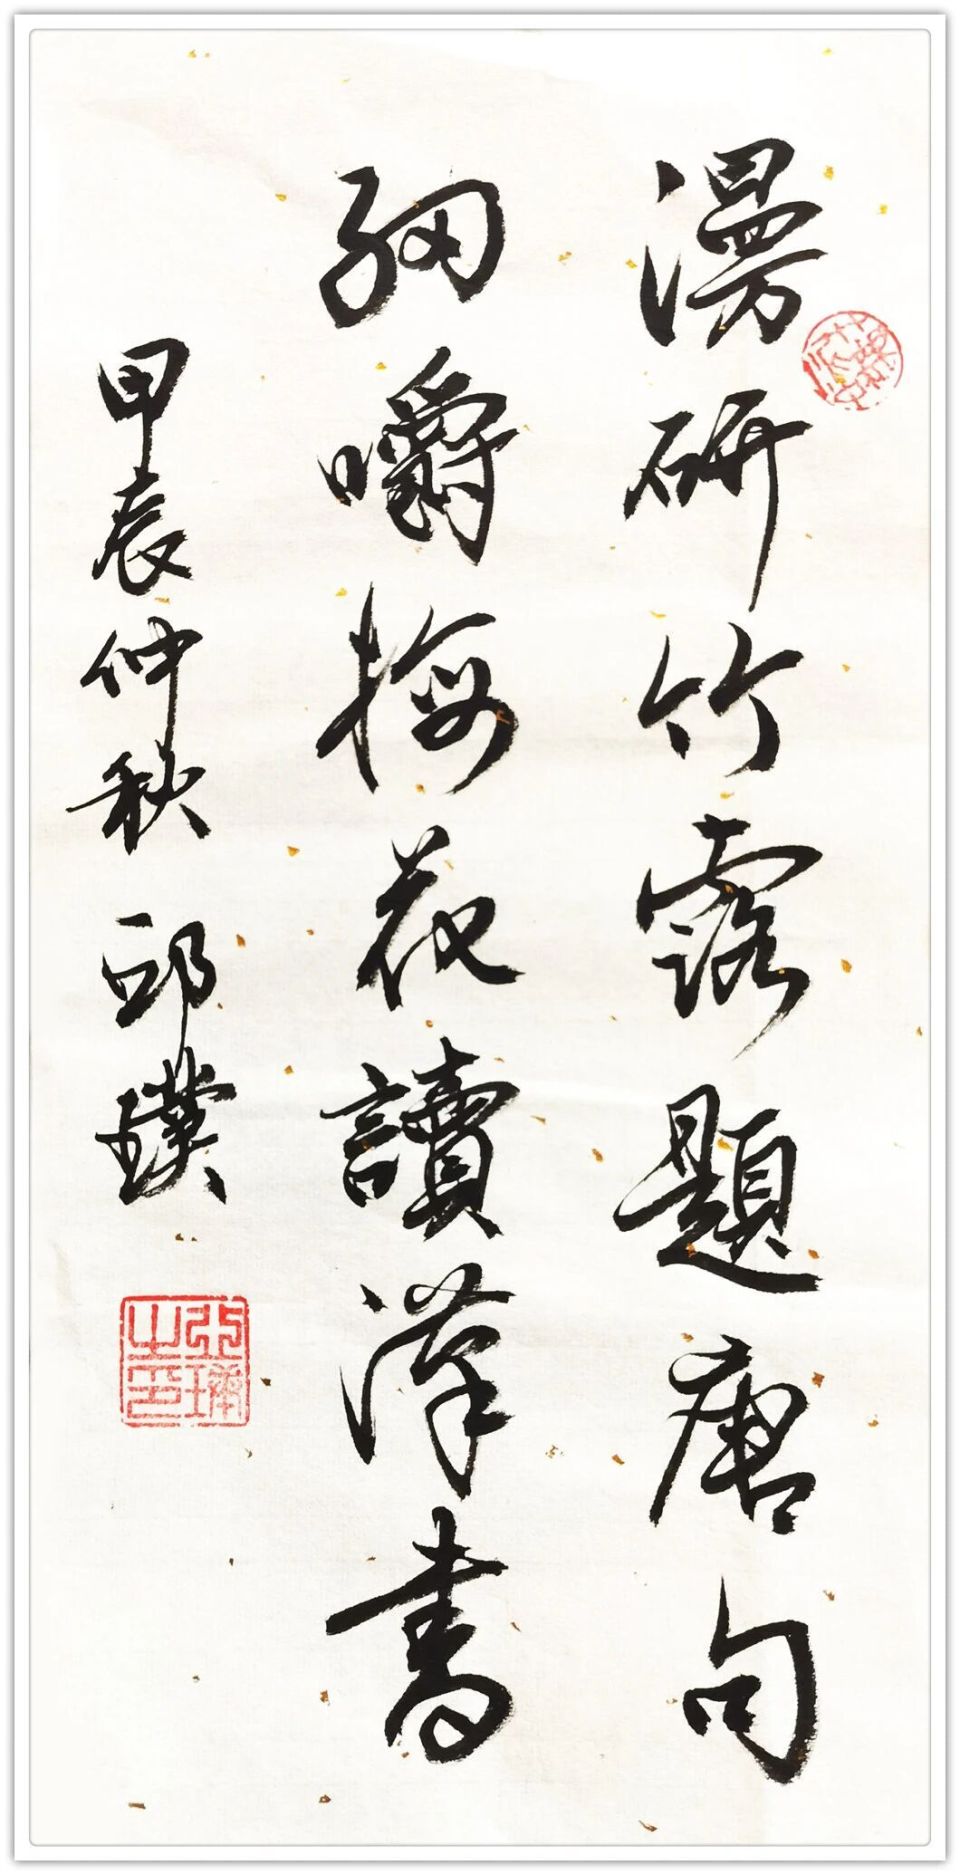 漫研竹露題唐句
細嚼梅花讀漢書
甲辰仲秋 邱璞